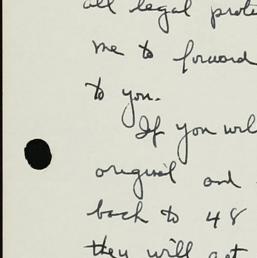 all legal prote
me to forward
to you.
If you wil
original and
back to 48
they will get